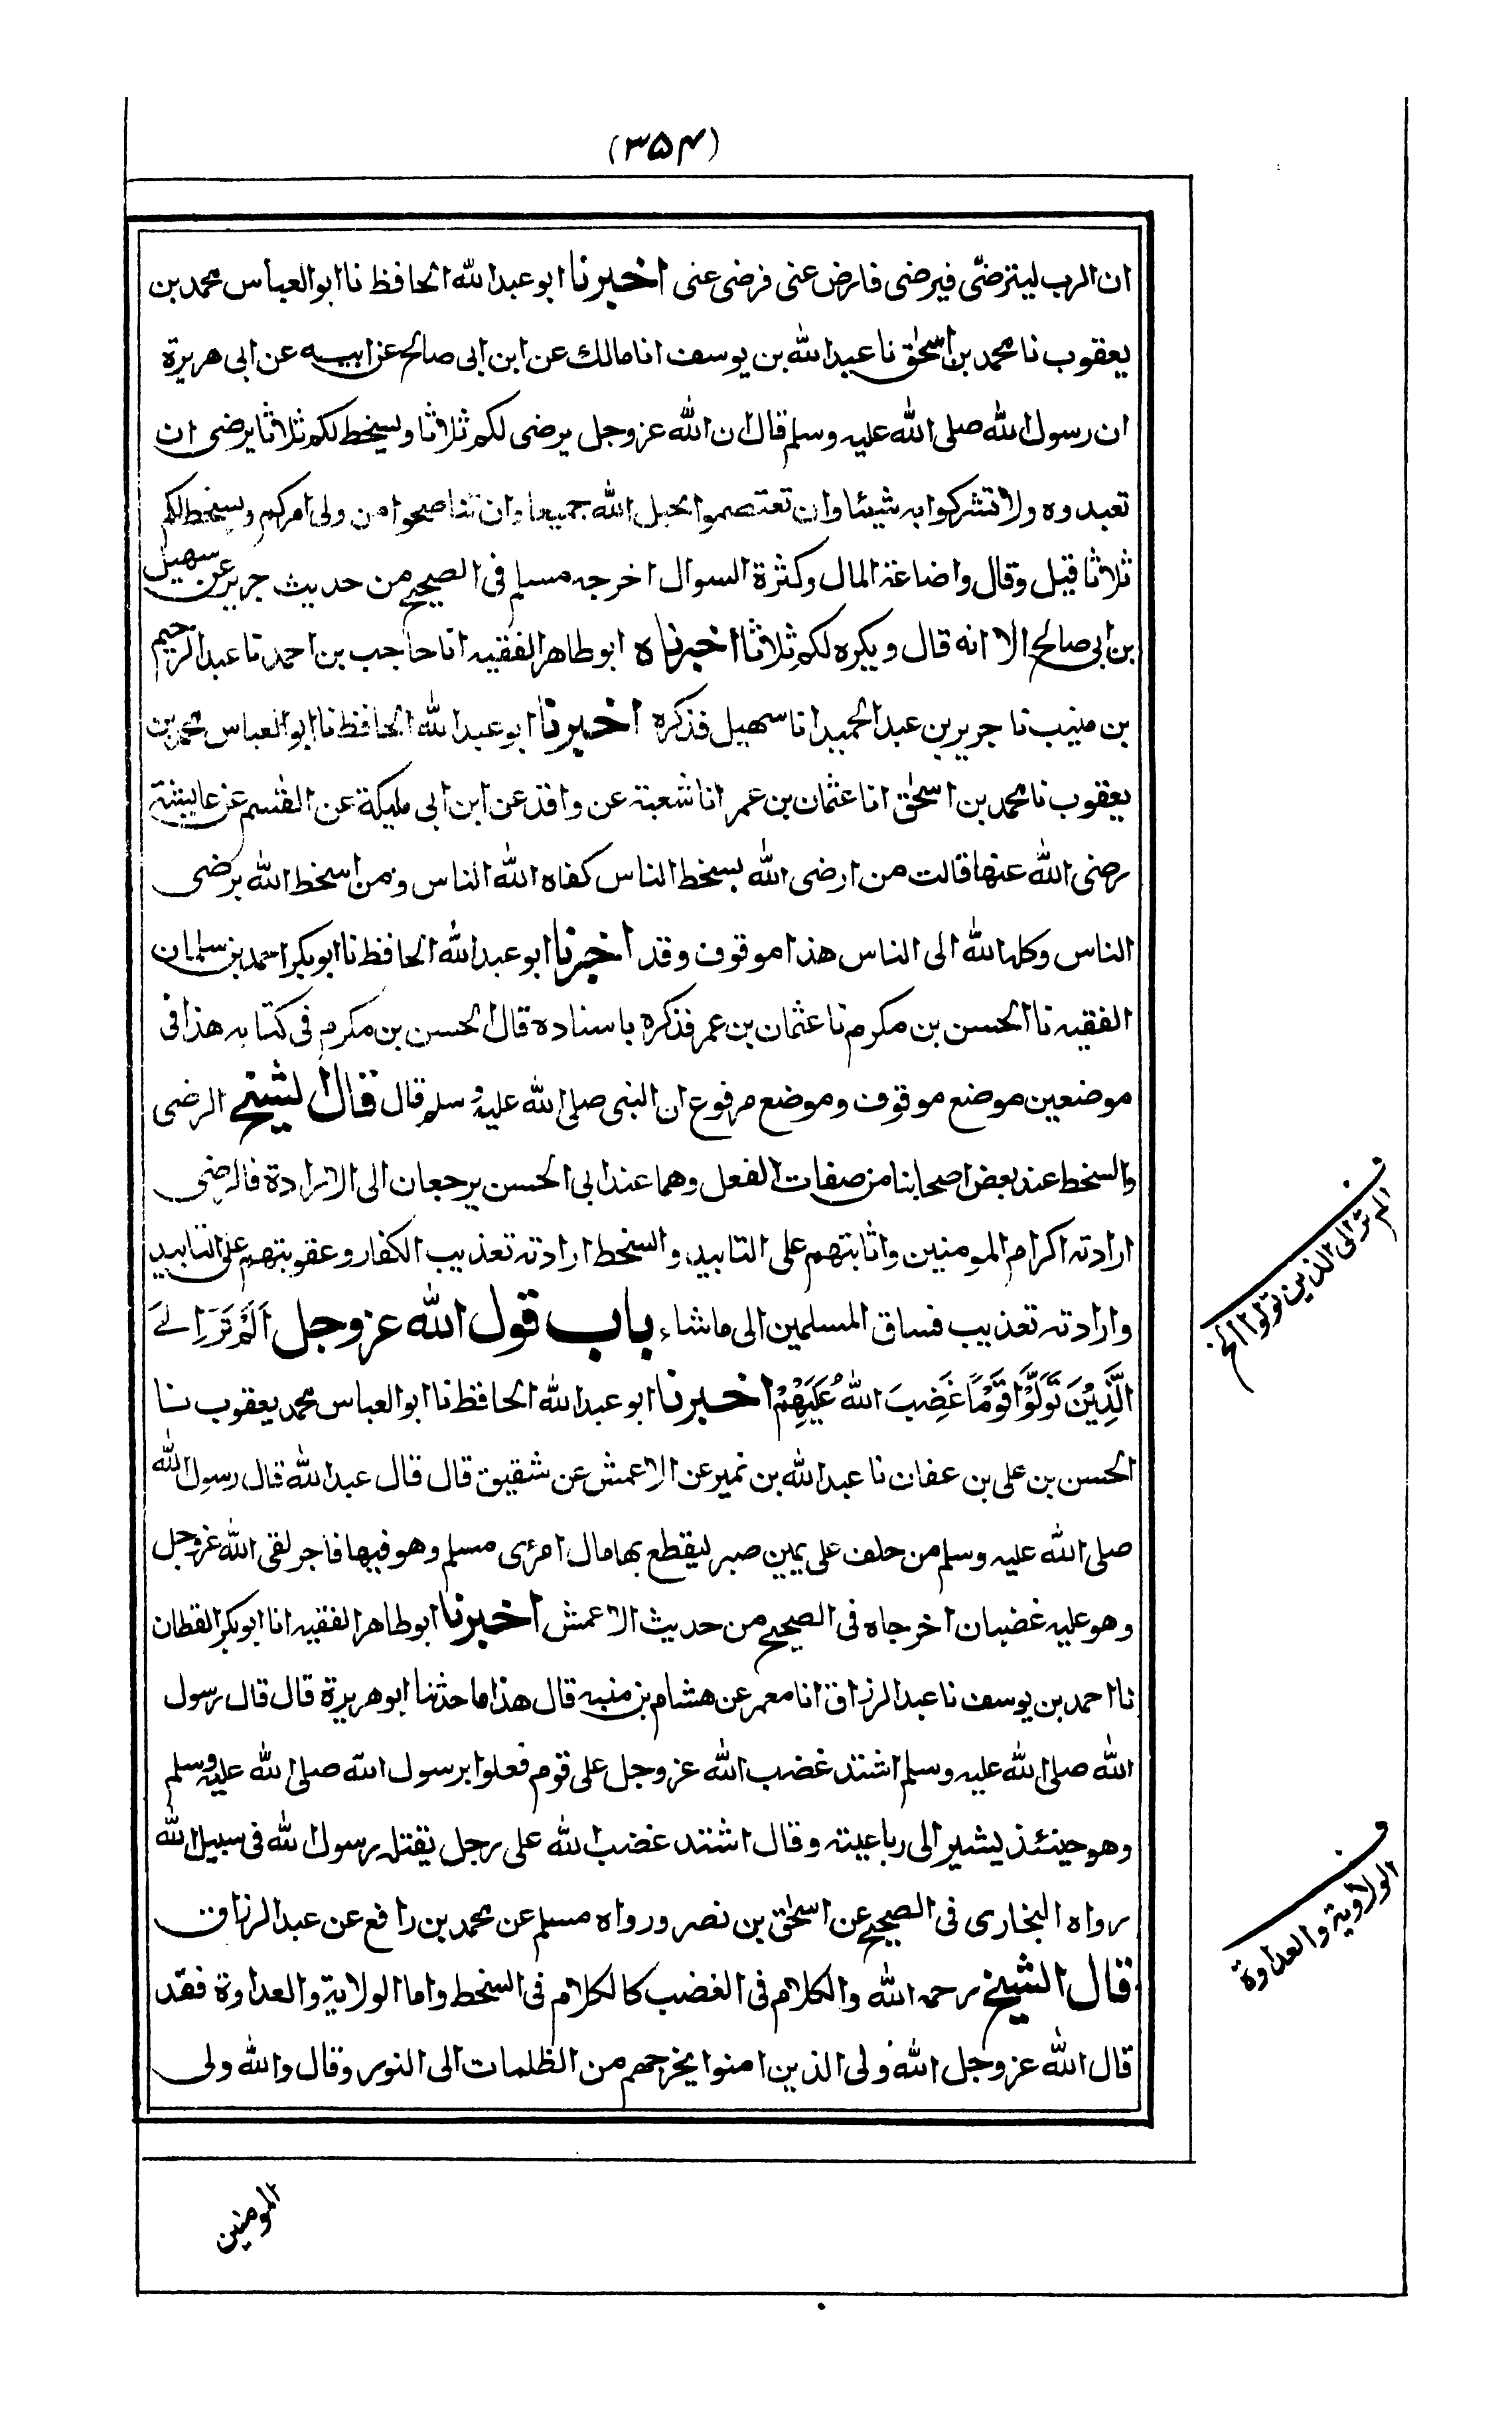 (۳۵۴)
ان الرب ليترضّى فيرضى فارض عنى فرضى عنى اخبرنا ابو عبد الله الحافظ نا ابو العباس محمد بن
يعقوب نا محمد بن اسحٰق نا عبد الله بن يوسف انا مالك عن ابن ابى صالح عن ابيه عن ابى هريرة
ان رسول الله صلى الله عليه وسلم قال ان الله عز وجل يرضى لكم ثلاثا ويسخط لكم ثلاثا يرضى ان
تعبدوه ولا تشركوا به شيئا وان تعتصموا بحبل الله جميعا وان تناصحوا من ولى امركم ويسخط لكم
ثلاثا قيل وقال واضاعة المال وكثرة السوال اخرجه مسلم فى الصحيح من حديث جرير عن سهيل
بن ابى صالح الا انه قال ويكره لكم ثلاثا اخبرناه ابو طاهر الفقيه انا حاجب بن احمد نا عبد الرحيم
بن منيب نا جرير بن عبد الحميد انا سهيل فذكره اخبرنا ابو عبد الله الحافظ نا ابو العباس محمد بن
يعقوب نا محمد بن اسحٰق انا عثمان بن عمر انا شعبة عن واقد عن ابن ابى مليكة عن القٰسم عن عايشة
رضى الله عنها قالت من ارضى الله بسخط الناس كفاه الله الناس ومن اسخط الله برضى
الناس وكله الله الى الناس هذا موقوف وقد اخبرنا ابو عبد الله الحافظ نا ابو بكر احمد بن سلمان
الفقيه نا الحسن بن مكرم نا عثمان بن عمر فذكره باسناده قال الحسن بن مكرم فى كتابه هذا فى
موضعين موضع موقوف وموضع مرفوع ان النبى صلى الله عليه وسلم قال قال الشيخ الرضى
والسخط عند بعض اصحابنا من صفات الفعل وهما عند ابى الحسن يرجعان الى الارادة فالرضى
ارادته اكرام المومنين واثابتهم على التابيد والسخط ارادته تعذيب الكفار وعقوبتهم على التابيد
وارادته تعذيب فساق المسلمين الى ماشاء باب قول الله عز وجل اَلَمْ تَرَ اِلَے
الَّذِيْنَ تَوَلَّوْا قَوْمًا غَضِبَ اللهُ عَلَيْهِمْ اخبرنا ابو عبد الله الحافظ نا ابو العباس محمد يعقوب نا
الحسن بن على بن عفان نا عبد الله بن نمير عن الاعمش عن شقيق قال قال عبد الله قال رسول الله
صلى الله عليه وسلم من حلف على يمين صبر ليقطع بها مال امرئ مسلم وهو فيها فاجر لقى الله عز وجل
وهو عليه غضبان اخرجاه فى الصحيح من حديث الاعمش اخبرنا ابو طاهر الفقيه انا ابو بكر القطان
نا احمد بن يوسف نا عبد الرزاق انا معمر عن هشام بن منبه قال هذا ما حدثنا ابو هريرة قال قال رسول
الله صلى الله عليه وسلم اشتد غضب الله عز وجل على قوم فعلوا برسول الله صلى الله عليه وسلم
وهو حينئذ يشير الى رباعيته وقال اشتد غضب الله على رجل يقتله رسول الله فى سبيل الله
رواه البخارى فى الصحيح عن اسحٰق بن نصر ورواه مسلم عن محمد بن رافع عن عبد الرزاق
قال الشيخ رحمه الله والكلام فى الغضب كالكلام فى السخط واما الولاية والعداوة فقد
قال الله عز وجل الله ولى الذين امنوا يخرجهم من الظلمات الى النور وقال والله ولى
المومنين
ف
الم تر الى الذين تولوا الخ
ف
الولاوية والعداوة